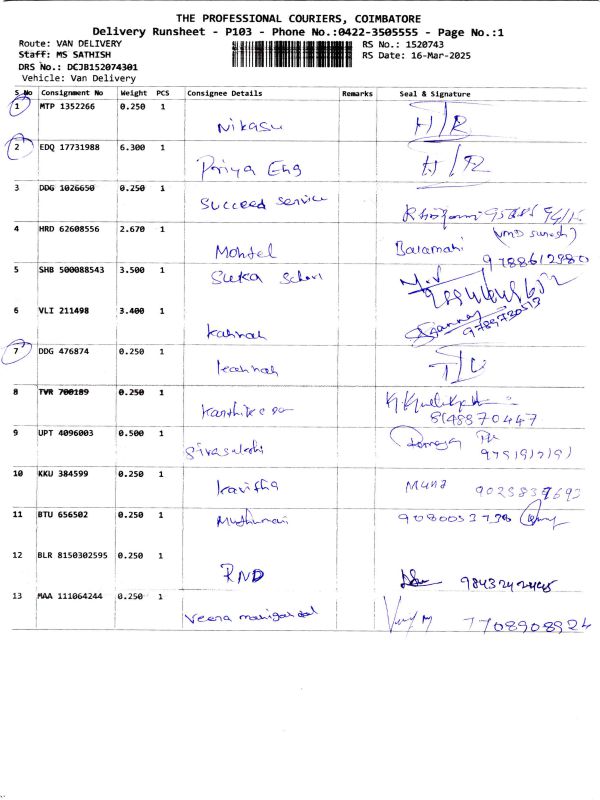 THE PROFESSIONAL COURIERS, COIMBATORE
Delivery Runsheet - P103 - Phone No.:0422-3505555 - Page No.:1
Route: VAN DELIVERY RS No.: 1520743
Staff: MS SATHISH RS Date: 16-Mar-2025
DRS No.: DCJB152074301
Vehicle: Van Delivery
S No Consignment No Weight PCS Consignee Details Remarks Seal & Signature
1 MTP 1352266 0.250 1
Nikasu H/R
2 EDQ 17731988 6.300 1
Priya Eng H/R
3 DDG 1026650 0.250 1
Succeed service
4 HRD 62608556 2.670 1
Mohtel Balamani 9788612980
5 SHB 500088543 3.500 1
Suka
6 VLI 211498 3.400 1
kannah 9789730513
7 DDG 476874 0.250 1
kannah
8 TVR 700189 0.250 1
8148870447
9 UPT 4096003 0.500 1
10 KKU 384599 0.250 1
kavitha Muna
11 BTU 656502 0.250 1
12 BLR 8150302595 0.250 1
RND
13 MAA 111064244 0.250 1
Veera 7708908924